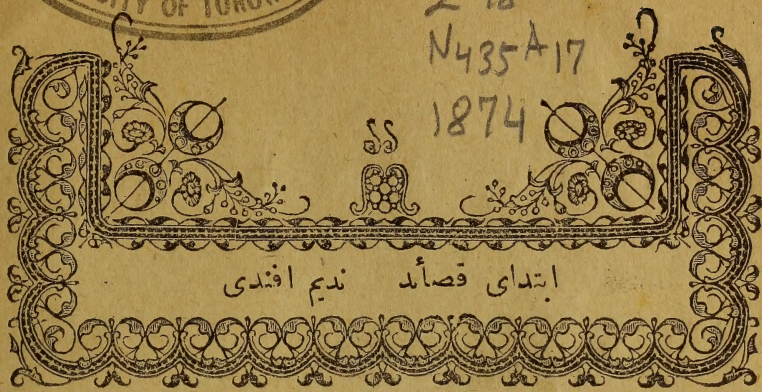 UNIVERSITY OF TORONTO
N435A17
1874
ابتدای قصائد ندیم افندی